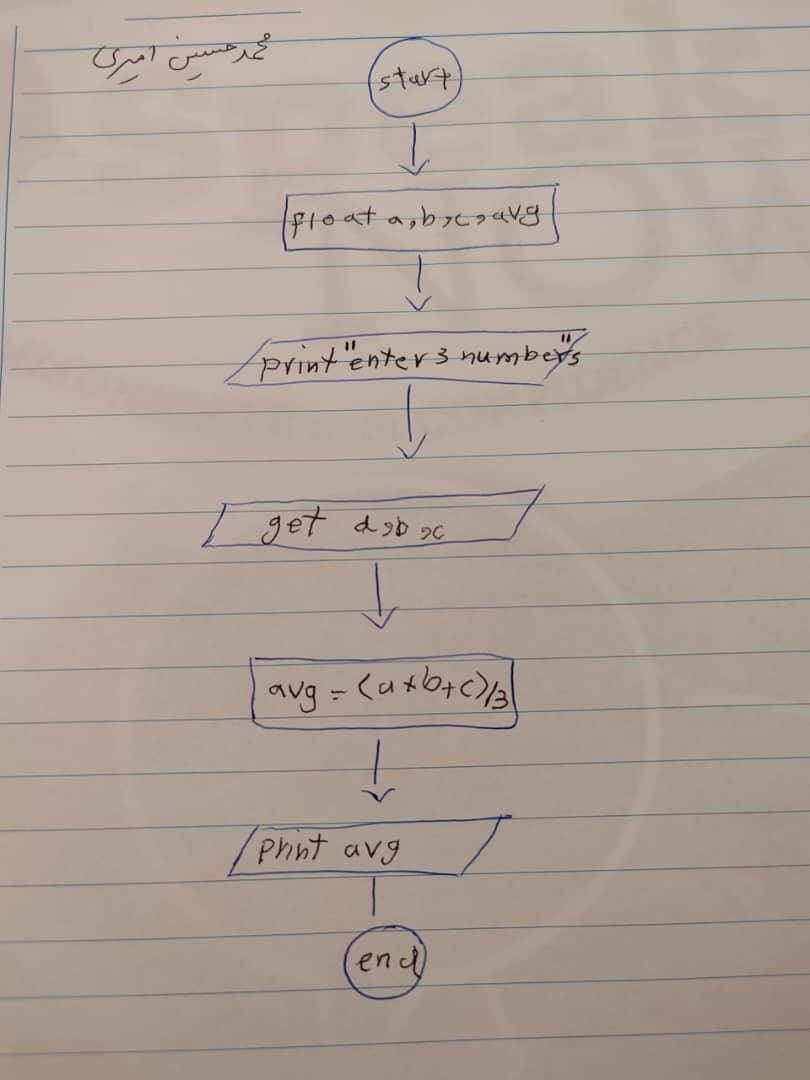 محمد حسین امیری
start
float a,b,c,avg
print "enter 3 numbers"
get a,b,c
avg = (a+b+c)/3
print avg
end